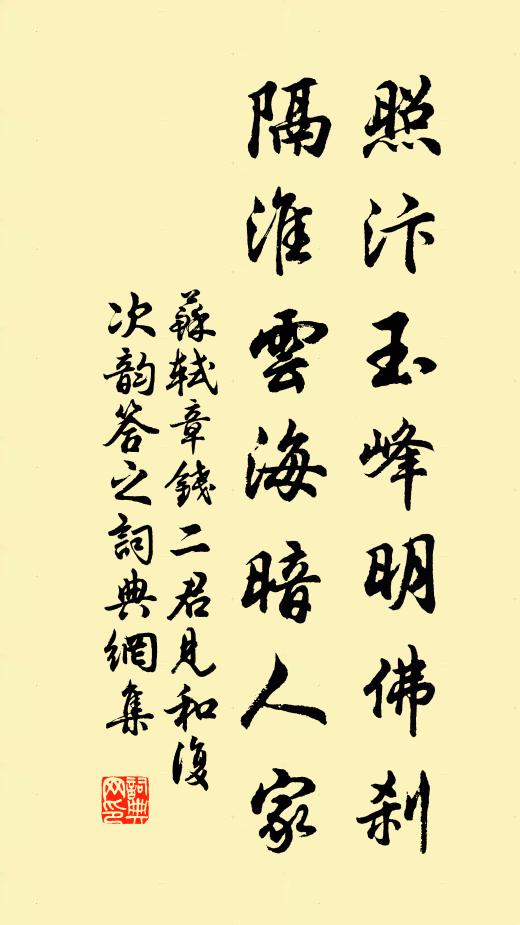 照汴玉峰明佛刹
隔淮雲海暗人家
蘇軾章錢二君見和復
次韵答之詞典網集
詞典
网印